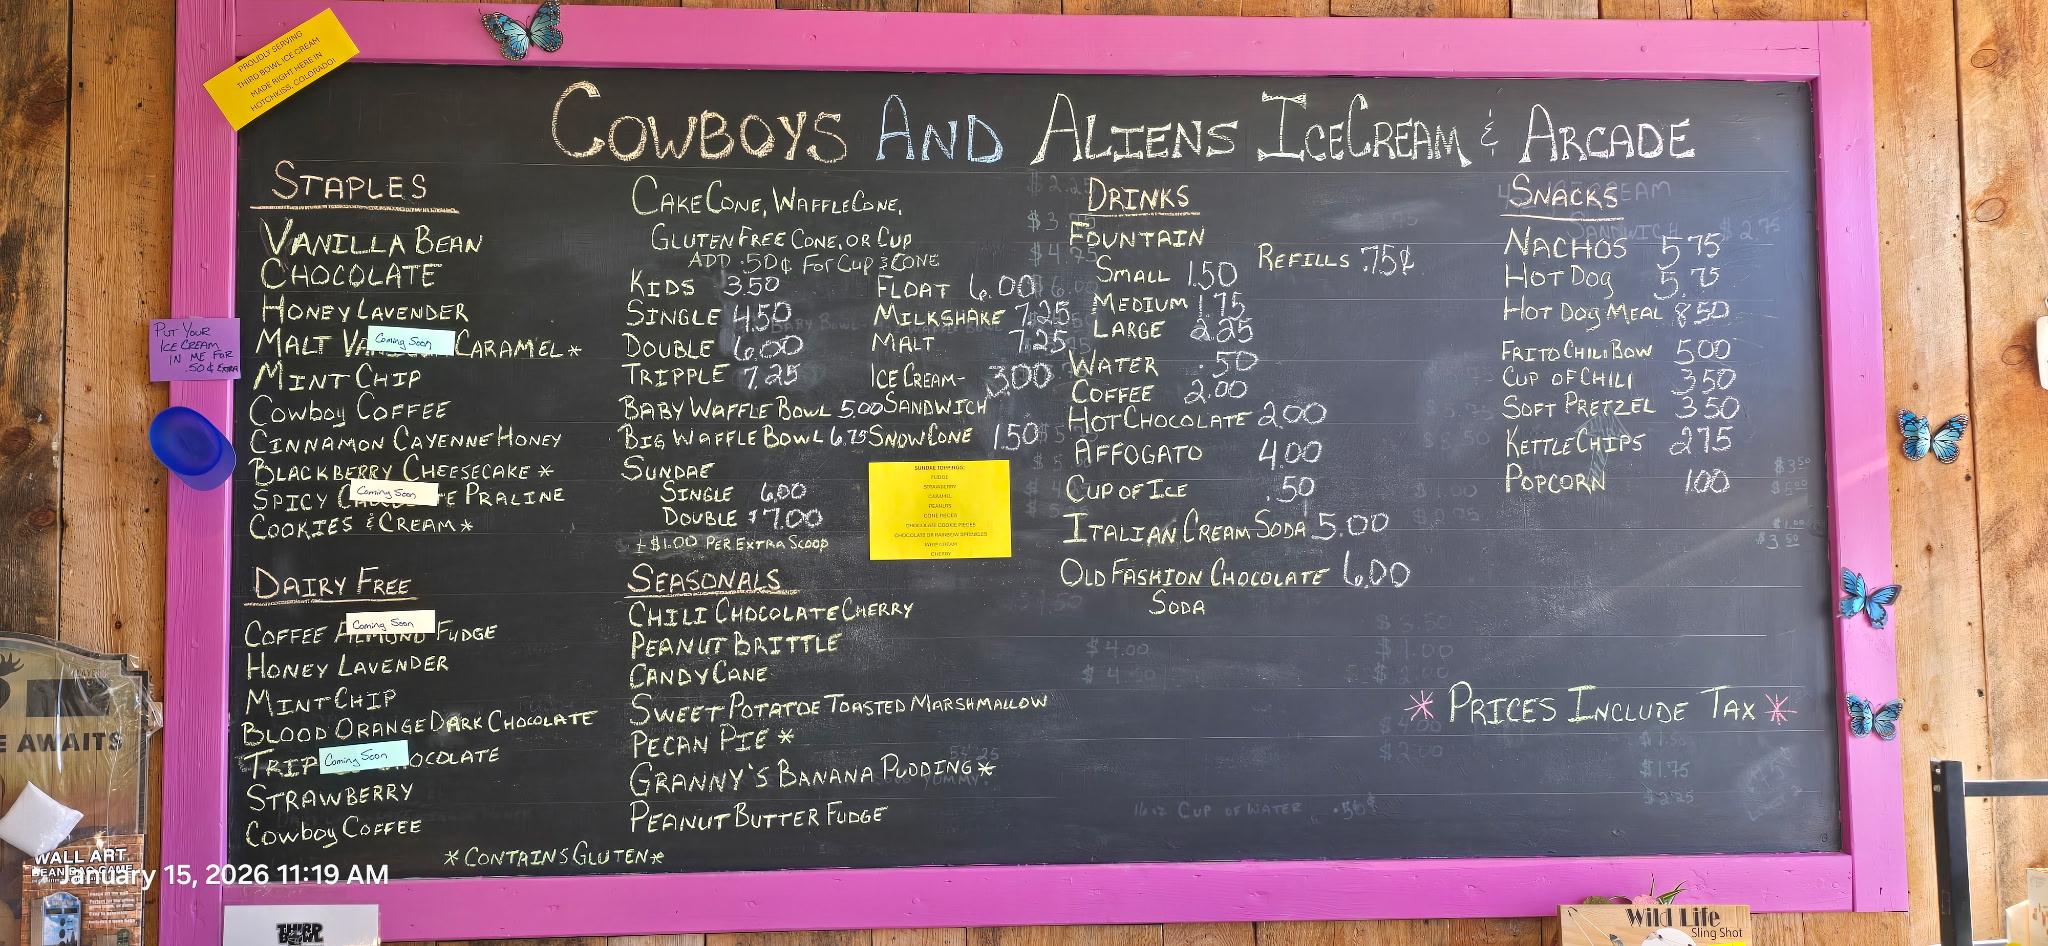 PROUDLY SERVING
THIRD BOWL ICE CREAM
MADE RIGHT HERE IN
HOTCHKISS, COLORADO!
COWBOYS AND ALIENS ICECREAM & ARCADE
STAPLES
VANILLA BEAN
CHOCOLATE
HONEY LAVENDER
MALT CARAMEL *
Coming Soon
MINT CHIP
COWBOY COFFEE
CINNAMON CAYENNE HONEY
BLACKBERRY CHEESECAKE *
SPICY PRALINE
Coming Soon
COOKIES & CREAM *
PUT YOUR
ICE CREAM
IN ME FOR
.50¢ EXTRA
DAIRY FREE
COFFEE ALMOND FUDGE
Coming Soon
HONEY LAVENDER
MINT CHIP
BLOOD ORANGE DARK CHOCOLATE
TRIP OCOLATE
Coming Soon
STRAWBERRY
COWBOY COFFEE
*CONTAINS GLUTEN*
CAKE CONE, WAFFLE CONE,
GLUTEN FREE CONE, OR CUP
ADD .50¢ FOR CUP & CONE
KIDS 3.50
SINGLE 4.50
DOUBLE 6.00
TRIPPLE 7.25
BABY WAFFLE BOWL 5.00
BIG WAFFLE BOWL 6.75
SUNDAE
SINGLE 6.00
DOUBLE $7.00
+$1.00 PER EXTRA SCOOP
FLOAT 6.00
MILKSHAKE 7.25
MALT 7.25
ICE CREAM- 3.00
SANDWICH
SNOW CONE 1.50
SUNDAE TOPPINGS:
FUDGE
STRAWBERRY
CARAMEL
PEANUTS
CONE PIECES
CHOCOLATE COOKIE PIECES
CHOCOLATE OR RAINBOW SPRINKLES
WHIP CREAM
CHERRY
SEASONALS
CHILI CHOCOLATE CHERRY
PEANUT BRITTLE
CANDY CANE
SWEET POTATOE TOASTED MARSHMALLOW
PECAN PIE *
GRANNY'S BANANA PUDDING *
PEANUT BUTTER FUDGE
DRINKS
FOUNTAIN
REFILLS .75¢
SMALL 1.50
MEDIUM 1.75
LARGE 2.25
WATER .50
COFFEE 2.00
HOT CHOCOLATE 2.00
AFFOGATO 4.00
CUP OF ICE .50
ITALIAN CREAM SODA 5.00
OLD FASHION CHOCOLATE 6.00
SODA
16oz CUP OF WATER .50¢
SNACKS
NACHOS 5.75
HOT DOG 5.75
HOT DOG MEAL 8.50
FRITO CHILI BOW 5.00
CUP OF CHILI 3.50
SOFT PRETZEL 3.50
KETTLE CHIPS 2.75
POPCORN 1.00
* PRICES INCLUDE TAX *
E AWAITS
WALL ART.
BEAN BAG GAME
January 15, 2026 11:19 AM
THIRD
BOWL
Wild Life
Sling Shot